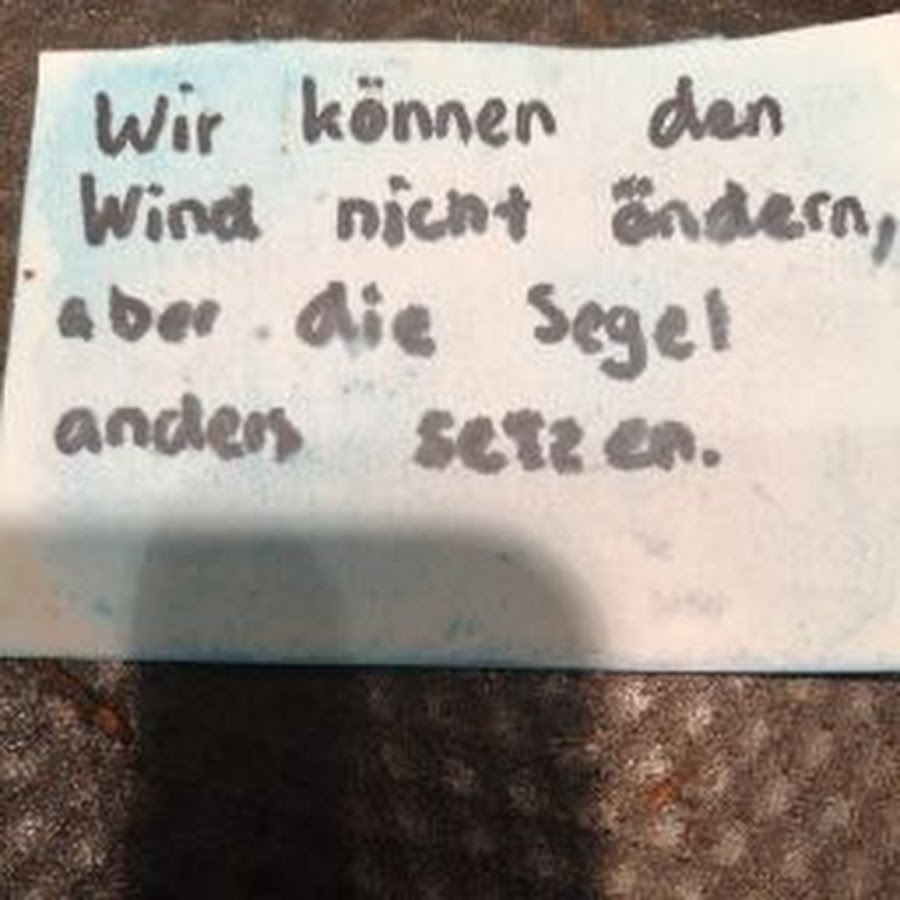 Wir können den
Wind nicht ändern,
aber die Segel
anders setzen.